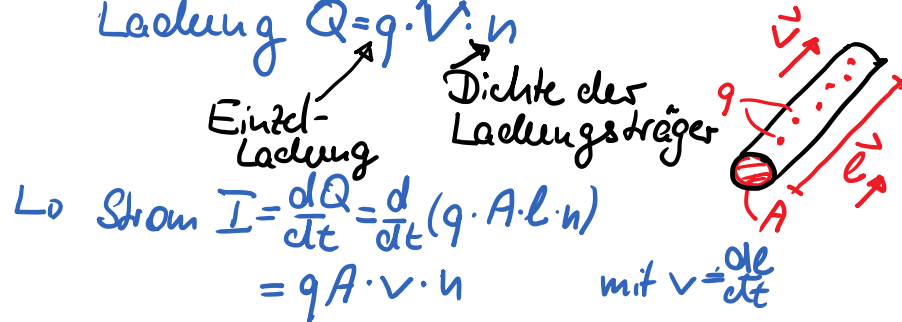 Ladung Q=q·V·n
Einzel-
Ladung
Dichte der
Ladungsträger
v⃗
q
l⃗
A
↳ Strom I = dQ/dt = d/dt (q·A·l·n)
= qA·v·n
mit v = dl/dt